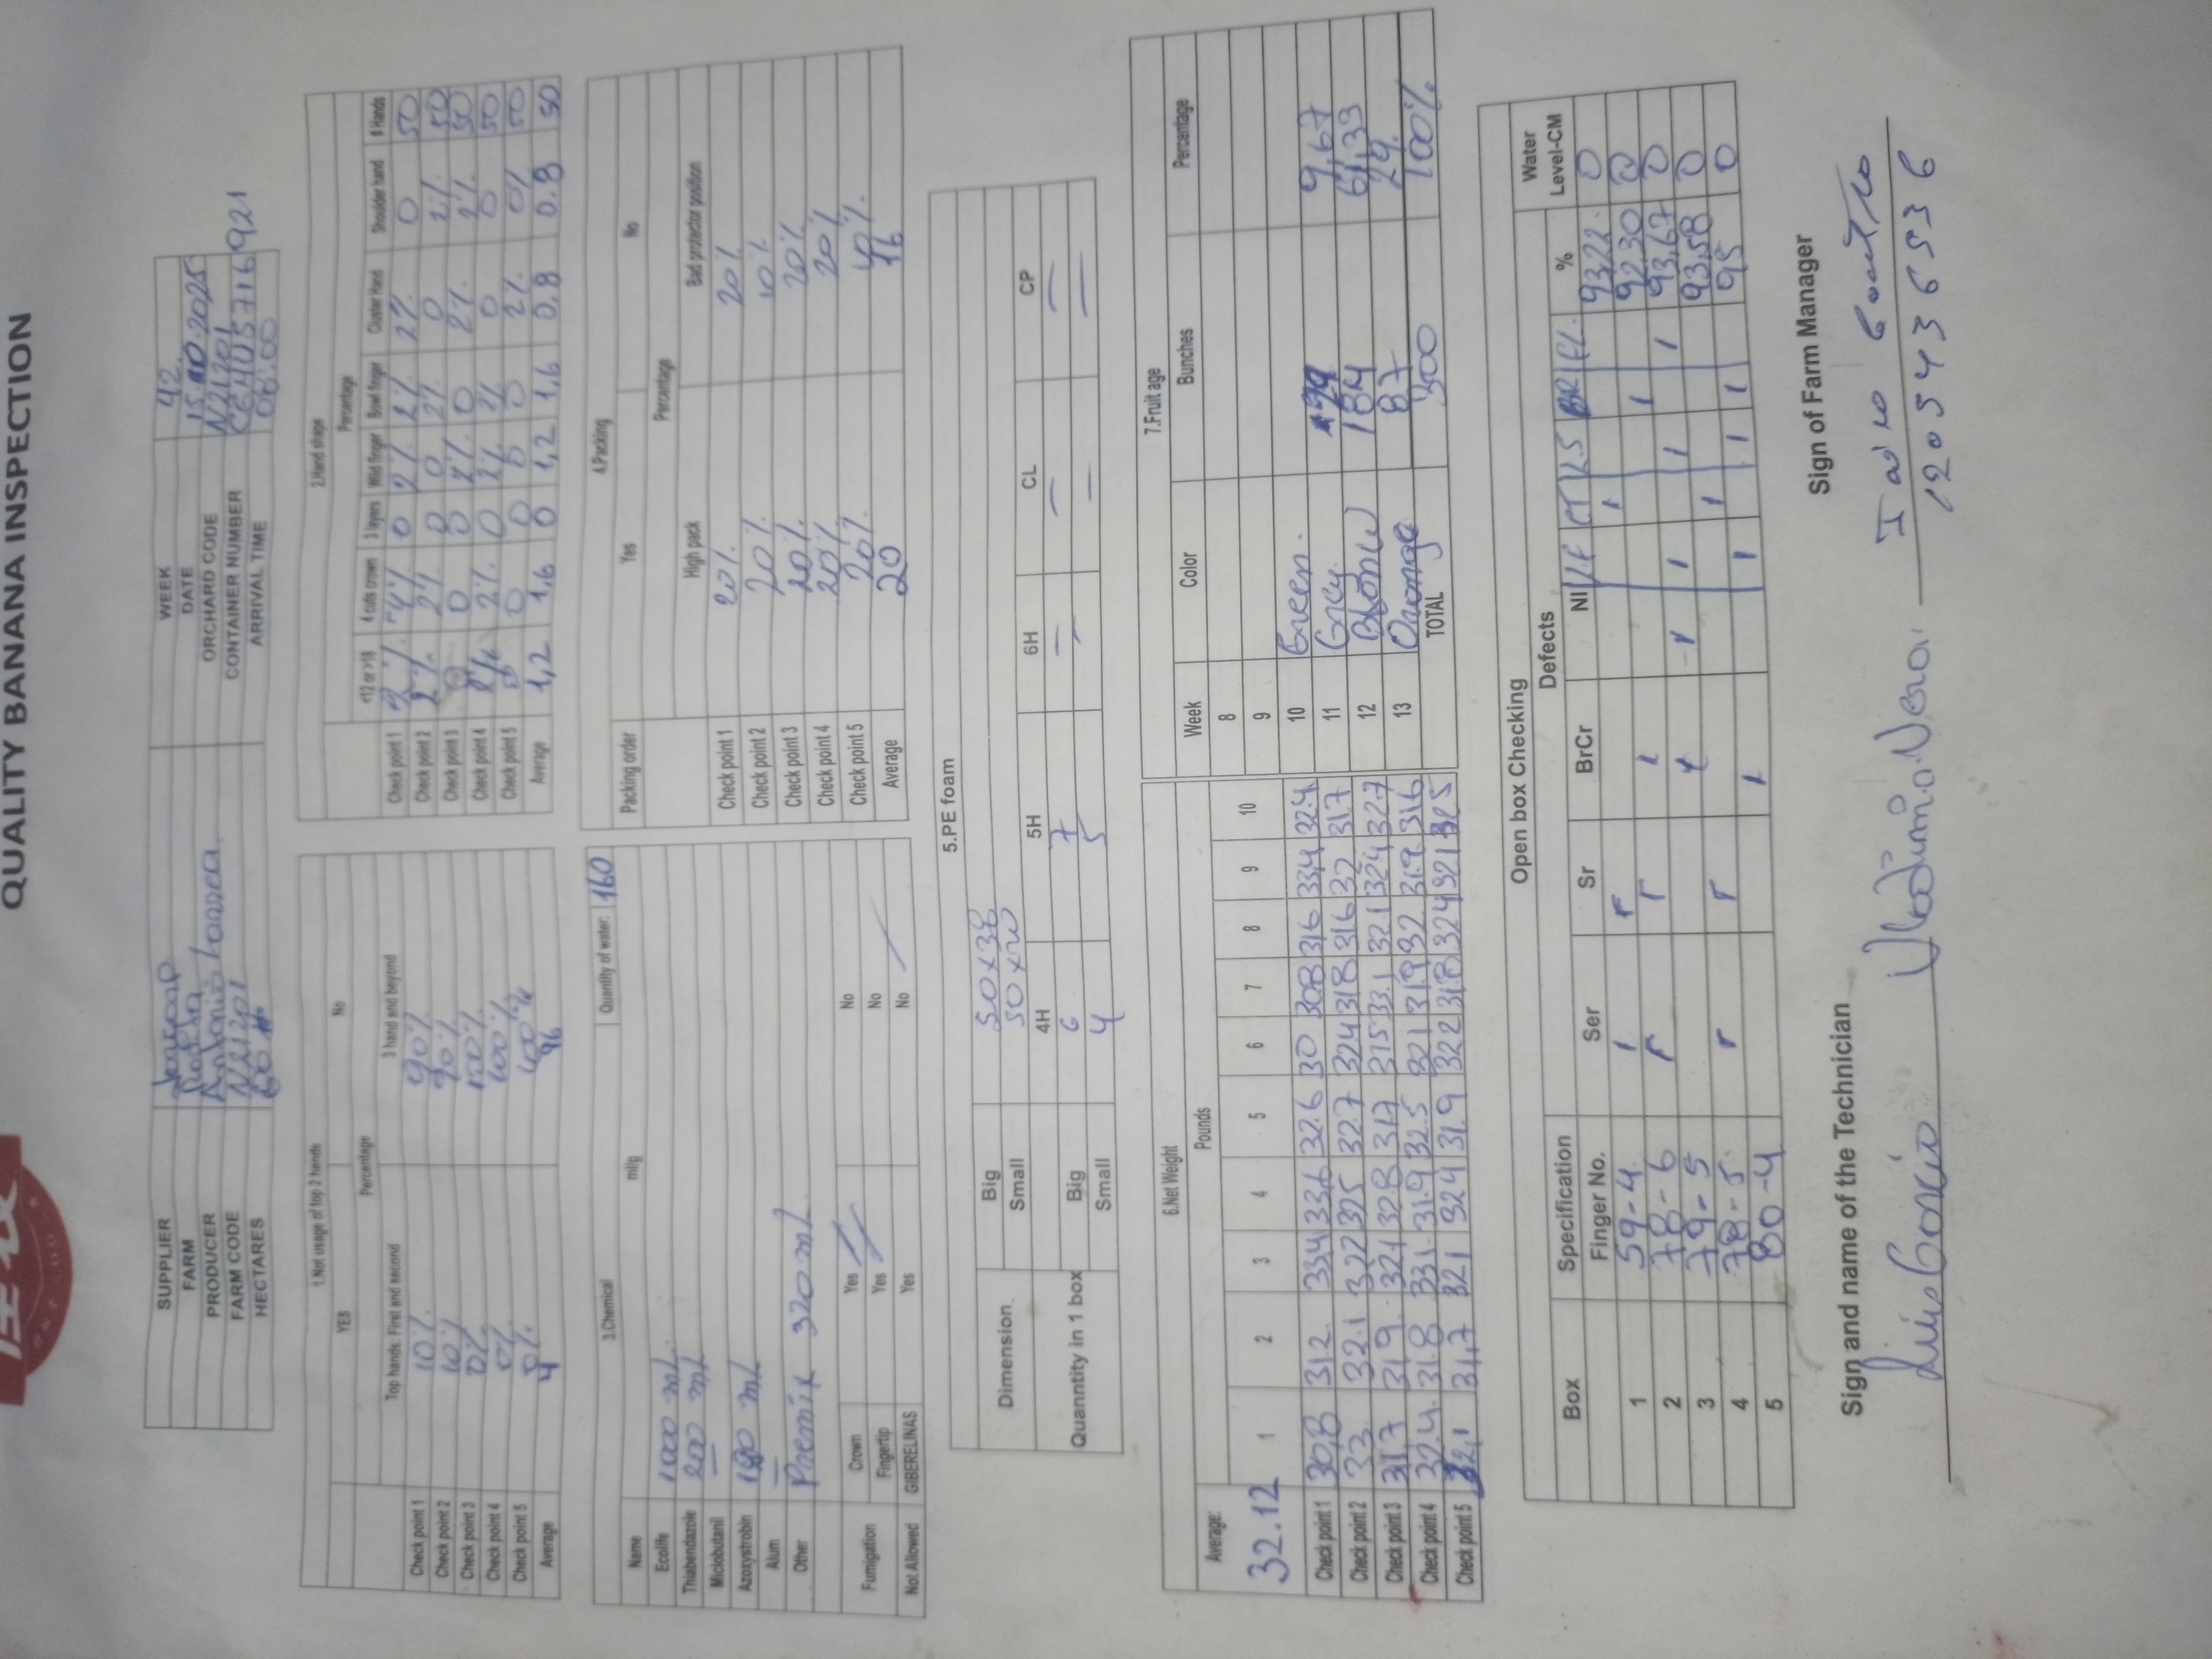 QUALITY BANANA INSPECTION
SUPPLIER WEEK 42
FARM DATE 15.10.2025
PRODUCER Antonio ORCHARD CODE N21201
FARM CODE N21201 CONTAINER NUMBER 5716921
HECTARES 60 ARRIVAL TIME 08:00
1.Not usage of top 2 hands
YES No
Percentage
Top hands: First and second 3 hand and beyond
Check point 1 10% 90%
Check point 2 10% 90%
Check point 3 0% 100%
Check point 4 0% 100%
Check point 5 0% 100%
Average 4 96
2.Hand shape
Percentage
<12 or >18 4 cuts crown 3 layers Wild finger Bowl finger Cluster Hand Shoulder hand # Hands
Check point 1 2% 4% 0 2% 2% 2% 0 50
Check point 2 2% 2% 0 0 2% 0 2% 50
Check point 3 0 0 2% 0 2% 2% 50
Check point 4 2% 0 2% 0 0 50
Check point 5 0 0 0 0 2% 0% 50
Average 1,2 1,6 0 1,2 1,6 0.8 0.8 50
3.Chemical Quantity of water: 160
Name ml/g
Ecolife 1000 mL.
Thiabendazole 200 mL
Miclobutanil —
Azoxystrobin mL
Alum —
Other Premix 320 mL.
Fumigation Crown Yes No
Fingertip Yes No
Not Allowed GIBERELINAS Yes No
4.Packing
Packing order Yes No
Percentage
High pack Bad protector position
Check point 1 20% 20%
Check point 2 20% 10%
Check point 3 20% 20%
Check point 4 20% 20%
Check point 5 20% 10%
Average 20 16
5.PE foam
Dimension Big 50x38
Small 50x20
4H 5H 6H CL CP
Quanntity in 1 box Big 6 7 — — —
Small 4 5 — — —
6.Net Weight
Average: Pounds
32.12 1 2 3 4 5 6 7 8 9 10
Check point 1 30,8 312. 334 33,6 32.6 30 308 316 33,4 32.4
Check point 2 33 32.1 322 325 32.7 324 318 316 32 317
Check point 3 31,7 319 321 32.8 317 315 33.1 321 324 32.7
Check point 4 32.4. 31.8 331 31.9 32.5 321 319 32 31.9 316
Check point 5 32,1 31,7 321 324 31.9 322 31.8 324 321 325
7.Fruit age
Week Color Bunches Percentage
8
9
10 Green.
11 Grey 29 9,67
12 Bronw 184 61,33
13 Orange 87 29
TOTAL 300 100%
Open box Checking
Box Specification Defects % Water Level-CM
Finger No. Ser Sr BrCr NI L.F CT L.S BR FL.
1 59-4 93,22 0
2 78-6 92.30 0
3 79-5 93,67 0
4 78-5 93,58 0
5 80-4 95 0
Sign and name of the Technician Sign of Farm Manager
Luis Garcia Vladimir Vera
1205436536